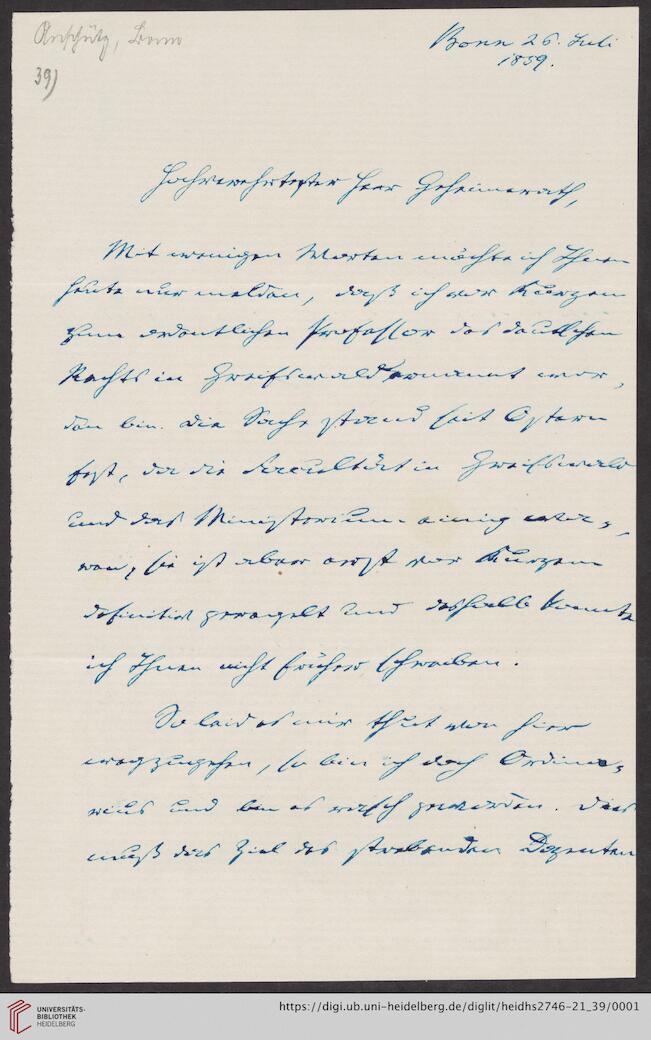 Anschütz, Bonn
39)
Bonn 26. Juli
1859.
Hochverehrtester Herr Geheimerath,
Mit wenigen Worten möchte ich Ihnen
heute nur melden, daß ich vor Kurzem
zum ordentlichen Professor des deutschen
Rechts in Greifswald ernannt wor,
den bin. Die Sache stand seit Ostern
fest, da die Facultät in Greifswald
und das Ministerium einig
waren, sie ist aber erst vor Kurzem
definitiv geregelt und deshalb konnte
ich Ihnen nicht früher schreiben.
So leid es mir thut von hier
wegzugehen, so bin ich doch Ordina,
rius und bin es rasch geworden. Dies
muß das Ziel des strebenden Dozenten
UNIVERSITÄTS-
BIBLIOTHEK
HEIDELBERG
https://digi.ub.uni-heidelberg.de/diglit/heidhs2746-21_39/0001